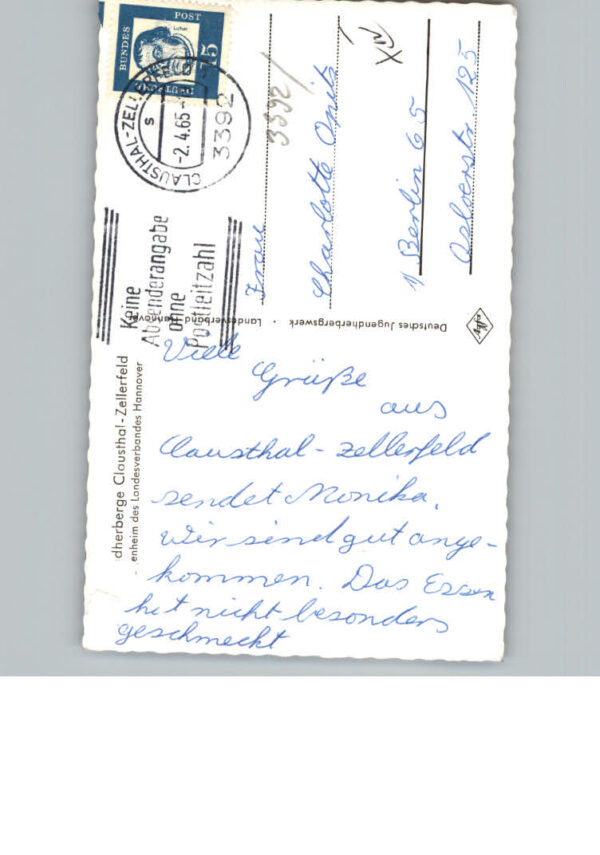 BUNDES
POST
DEUTSCHE
Luther
15
CLAUSTHAL-ZELLERFELD
s
-2.4.65-
3392
Keine
Absenderangabe
ohne
Postleitzahl
3392/
Frau
Charlotte
1/ Berlin 65
125
Deutsches Jugendherbergswerk · Landesverband Hannover
dherberge Clausthal-Zellerfeld
enheim des Landesverbandes Hannover
Viele
Grüße
aus
Clausthal-Zellerfeld
sendet Monika.
Wir sind gut ange-
kommen. Das Essen
hat nicht besonders
geschmeckt